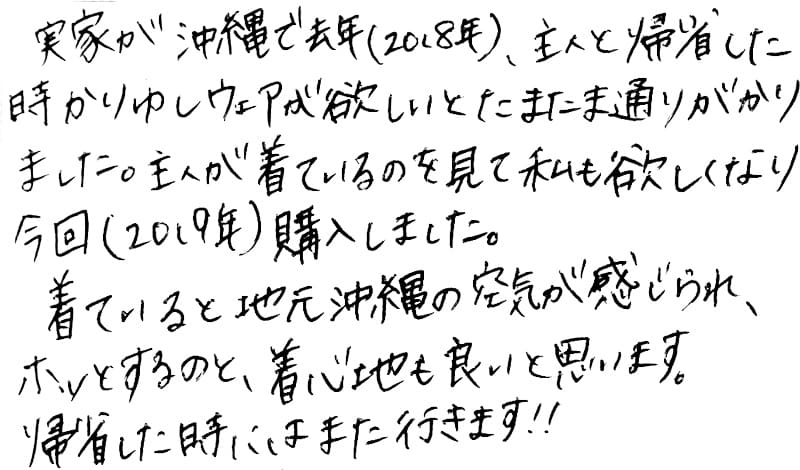 実家が沖縄で去年(2018年)、主人と帰省した
時かりゆしウェアが欲しいとたまたま通りがかり
ました。主人が着ているのを見て私も欲しくなり
今回(2019年)購入しました。
着ていると地元沖縄の空気が感じられ、
ホッとするのと、着心地も良いと思います。
帰省した時にはまた行きます!!